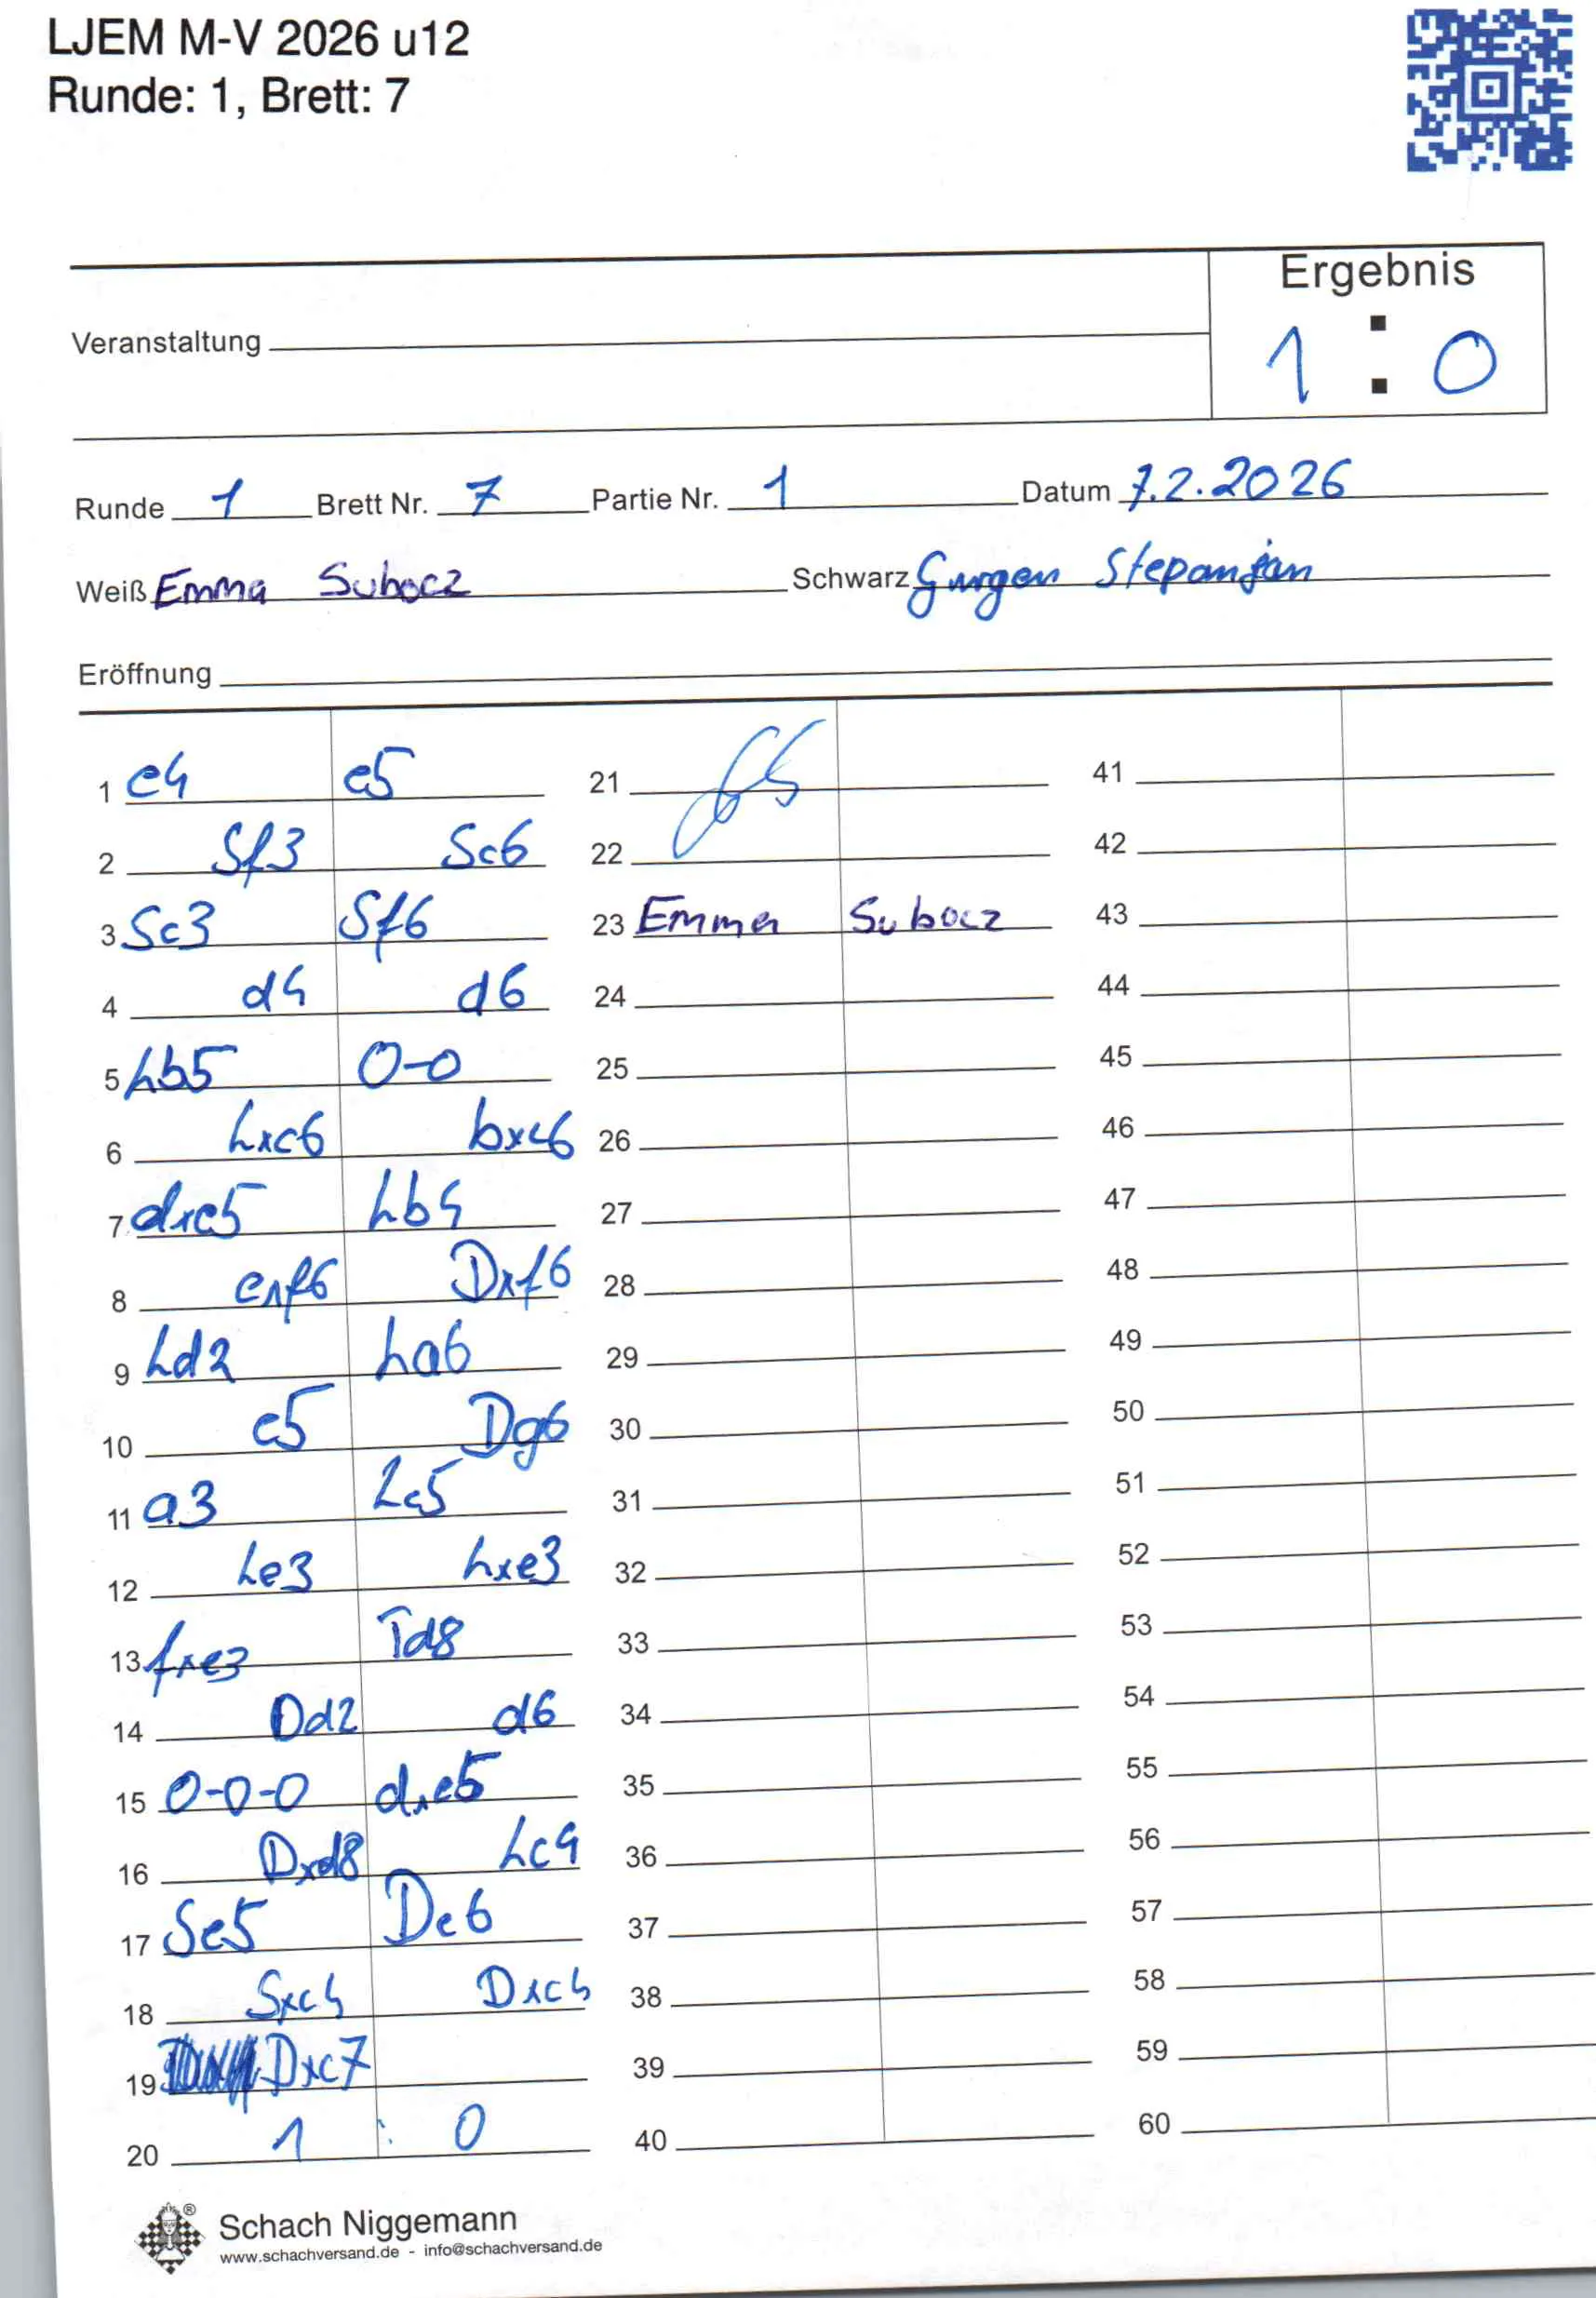 LJEM M-V 2026 u12
Runde: 1, Brett: 7
Ergebnis
1 : 0
Veranstaltung
Runde 1 Brett Nr. 7 Partie Nr. 1 Datum 7.2.2026
Weiß Emma Subocz Schwarz Gurgen Stepanjan
Eröffnung
1 e4 e5 21 41
2 Sf3 Sc6 22 42
3 Sc3 Sf6 23 Emma Subocz 43
4 d4 d6 24 44
5 Lb5 0-0 25 45
6 Lxc6 bxc6 26 46
7 dxe5 Lb4 27 47
8 exf6 Dxf6 28 48
9 Ld2 La6 29 49
10 e5 Dg6 30 50
11 a3 Lc5 31 51
12 Le3 Lxe3 32 52
13 fxe3 Td8 33 53
14 Dd2 d6 34 54
15 0-0-0 dxe5 35 55
16 Dxd8 Lc4 36 56
17 Se5 De6 37 57
18 Sxc4 Dxc4 38 58
19 Dxc7 39 59
20 1 : 0 40 60
® Schach Niggemann
www.schachversand.de - info@schachversand.de